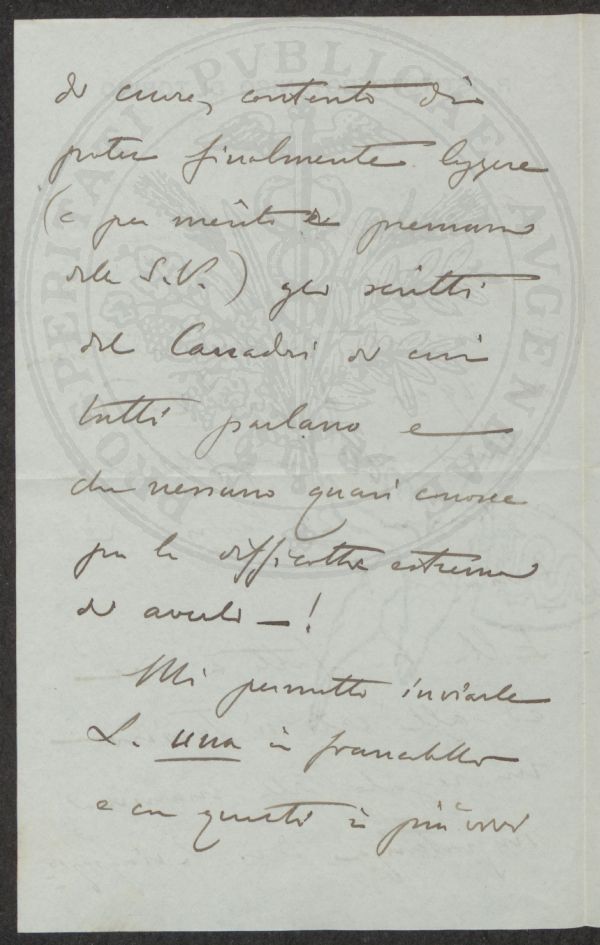 di cuore, contento di
poter finalmente leggere
(e per merito e premura
della S.V.) gli scritti
del di cui
tutti parlano e
che nessuno quasi conosce
per la difficoltà estrema
di averli — !
Mi permetto inviarle
L. una in francobolli
e con questi i più vivi
PROSPERITATI PVBLICAE AVGENDAE